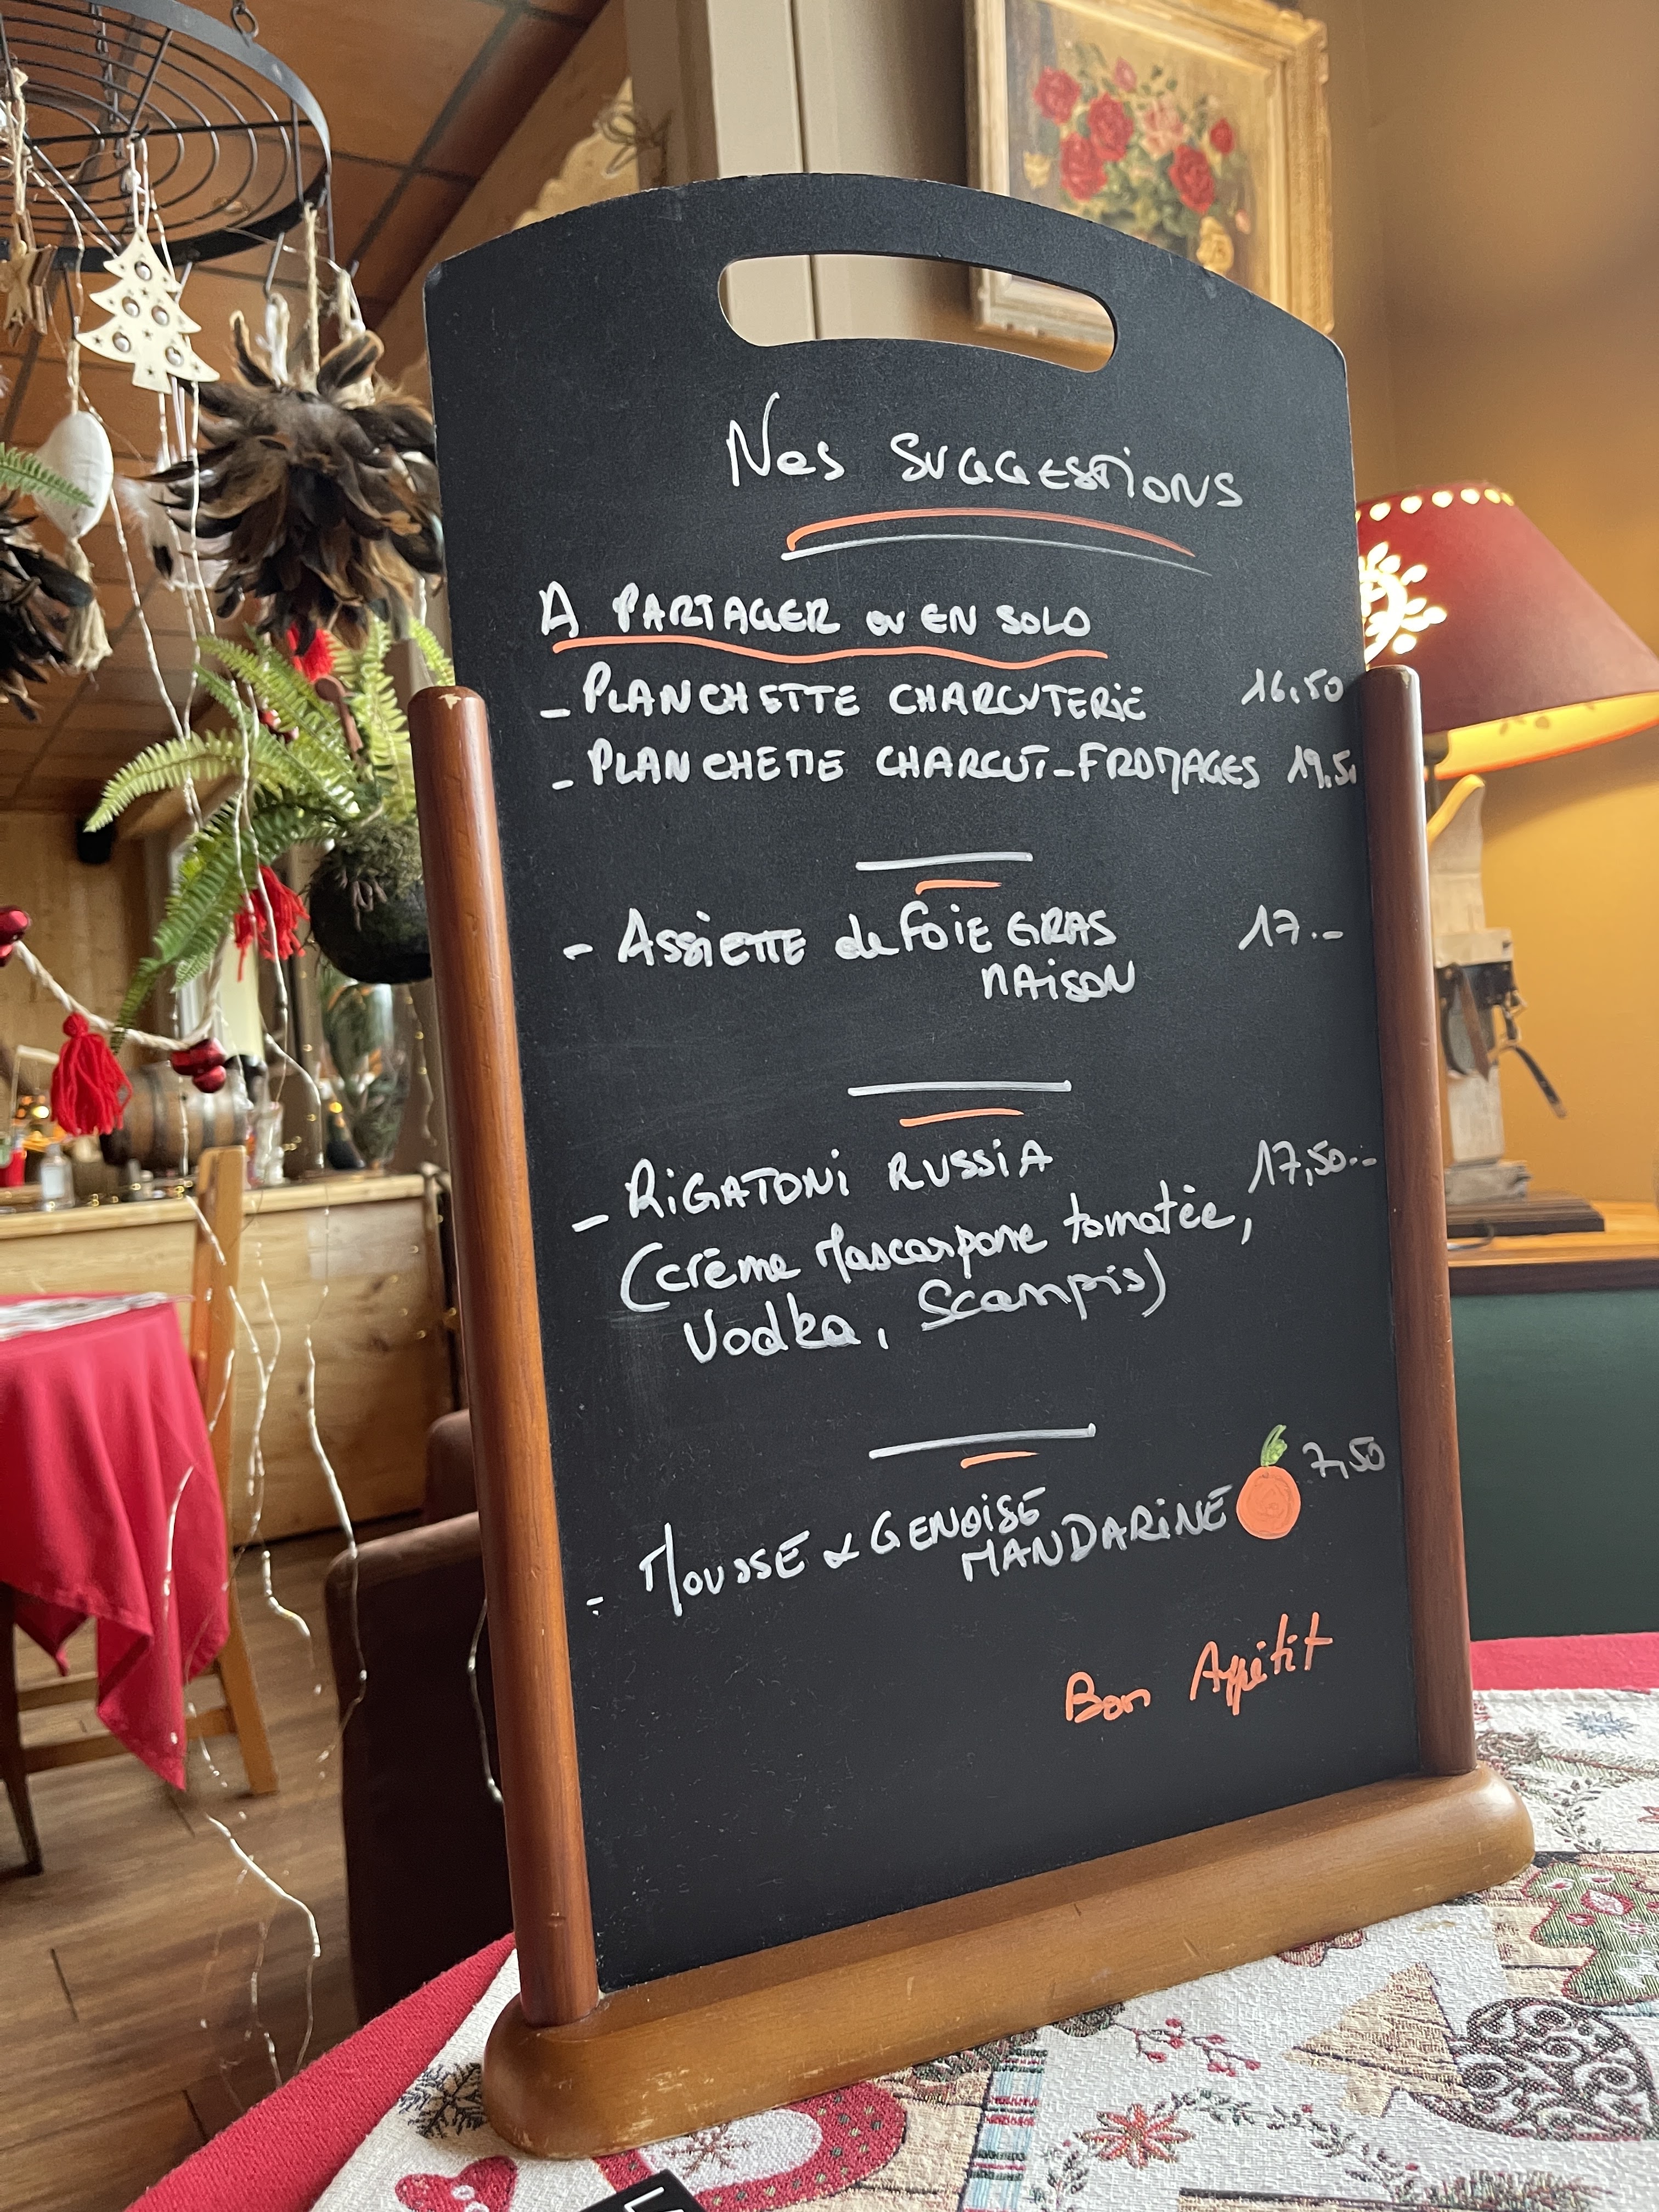 Nos SUGGESTIONS
A PARTAGER ou EN SOLO
- PLANCHETTE CHARCUTERIE 16,50
- PLANCHETTE CHARCUT-FROMAGES 19,50
- ASSIETTE de FOIE GRAS 17.-
MAISON
- RIGATONI RUSSIA 17,50.-
(crème Mascarpone tomatée,
Vodka, Scampis)
- MOUSSE & GENOISE 7,50
MANDARINE
Bon Appétit